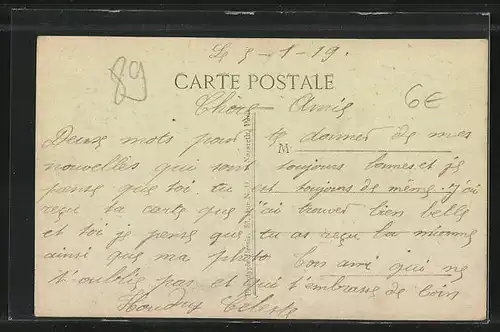 Le 3-1-19.
89
CARTE POSTALE
6€
Chère Amie
Deux mots pour te donner de mes
M
nouvelles qui sont toujours bonnes et je
pense que toi tu est toujours de même. j'ai
reçu ta carte que j'ai trouver bien belle
et toi je pense que tu as reçu la mienne
ainsi que ma photo Ton ami qui ne
t'oublie pas et qui t'embrasse de loin
Celeste